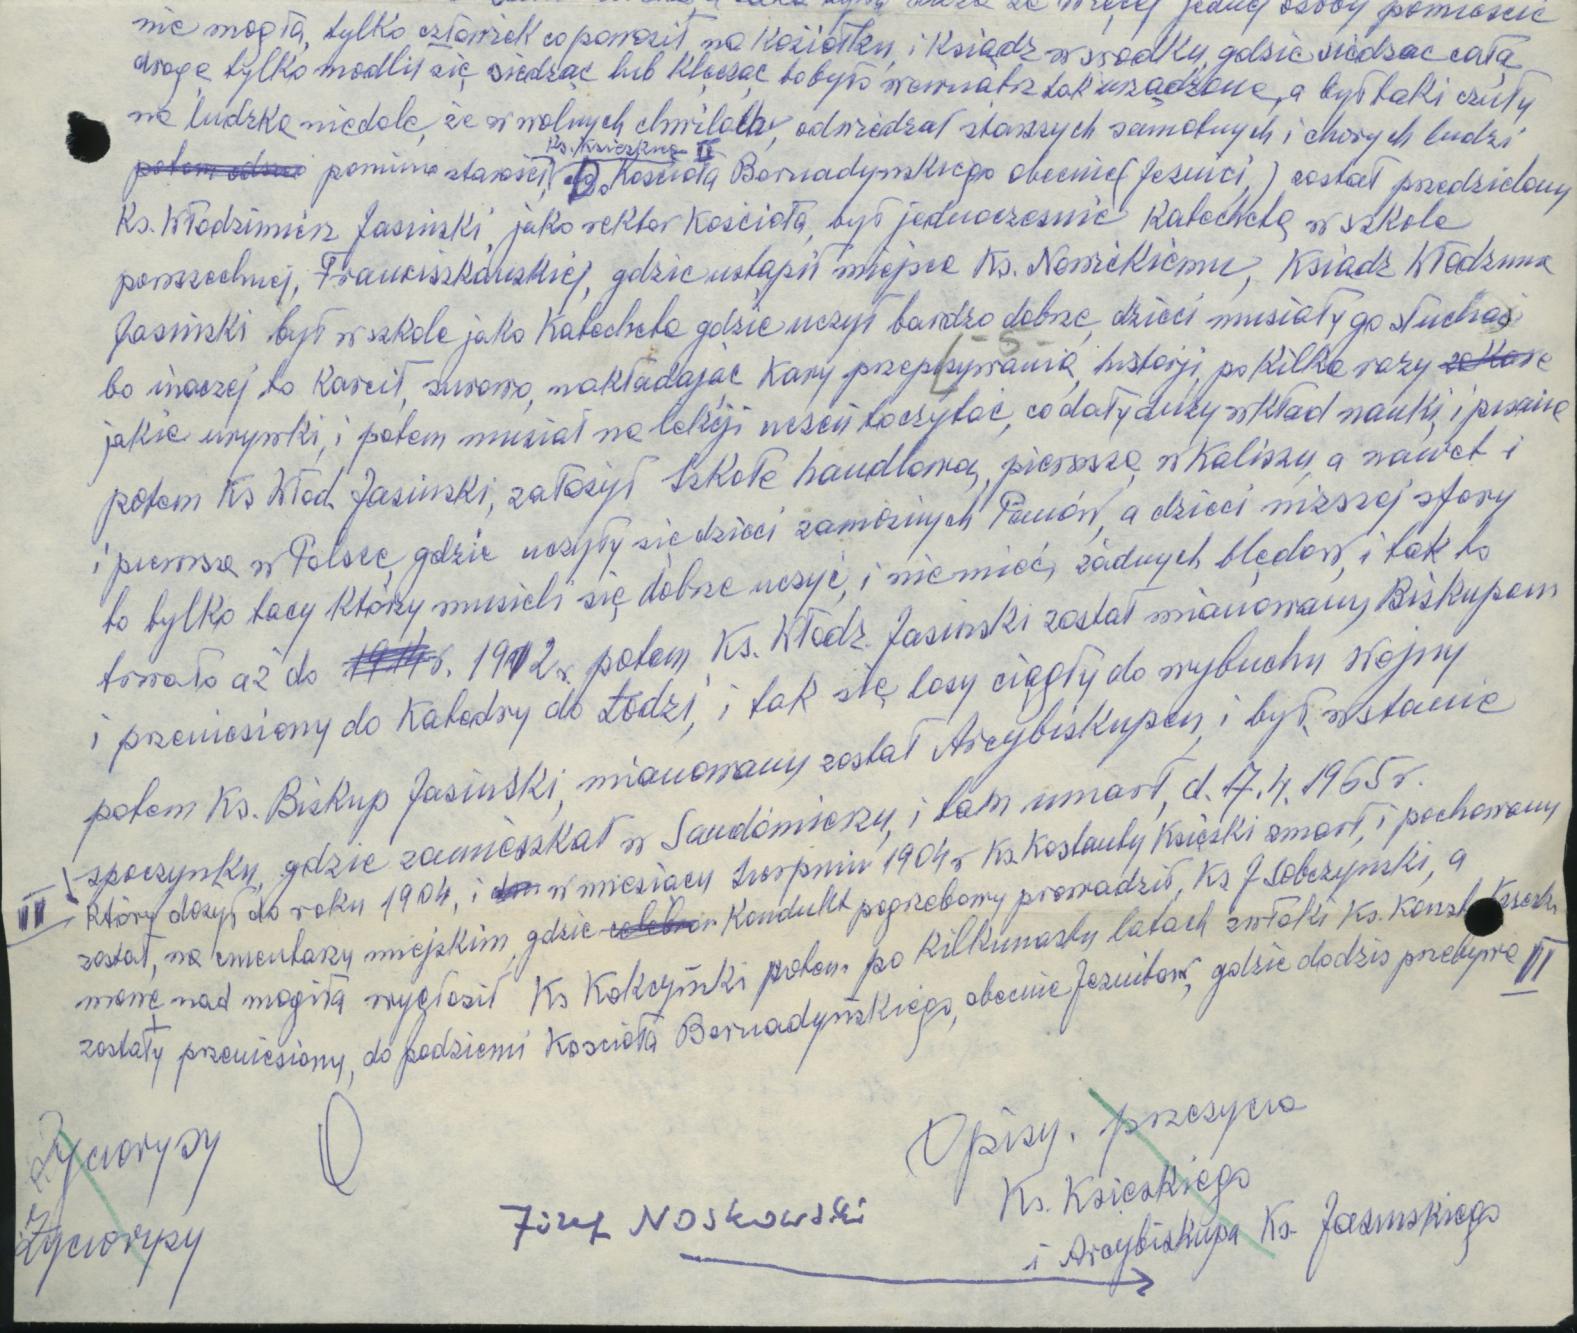 jednej osoby pomieścić
nie mogła, tylko człowiek co powoził, na koziołku, i Ksiądz w środku, gdzie siedząc całą
drogę tylko modlił się, siedząc lub klęcząc, to było wewnątrz tak urządzone, a był taki czuły
na ludzką niedolę, że w wolnych chwilach, odwiedzał starszych samotnych i chorych ludzi
pomimo starości, do Kościoła Bernadyńskiego obecnie (Jezuici,) został przedzielony
Ks. Włodzimierz Jasinski, jako rektor Kościoła, był jednocześnie Katechetą w szkole
powszechnej, Franciszkańskiej, gdzie ustąpił miejsca Ks. Nowickiemu, Ksiądz Włodzimie
Jasinski był w szkole jako Katecheta gdzie uczył bardzo dobrze, dzieci musiały go słuchać
- 5 -
bo inaczej to karcił, surowo, nakładając kary przepisywania, historji, po kilka razy
jakie urywki, i potem musiał na lekcji uczeń to czytać, co dały duży wkład nauki, i pisania
potem Ks Włod. Jasinski, założył Szkołę handlową, pierwszą w Kaliszu, a nawet i
i pierwszą w Polsce, gdzie uczyły się dzieci zamożnych Panów, a dzieci niższej sfery
to tylko tacy którzy musieli się dobrze uczyć, i nie mieć, żadnych błędów, i tak to
trwało aż do 1914 r. 1912 r. potem, Ks. Włodz. Jasinski został mianowany Biskupem
i przeniesiony do Katedry do Łodzi, i tak się losy ciągły do wybuchu Wojny
potem Ks. Biskup Jasiński, mianowany został Arcybiskupem, i był w stanie
spoczynku, gdzie zamieszkał w Sandomierzu, i tam umarł, d. 17. 4. 1965 r.
II który dożył do roku 1904, i w miesiącu Sierpniu 1904 r Ks. Kostanty Księski zmarł, i pochowany
został, na cmentarzu miejskim, gdzie kondukt pogrzebowy prowadził, Ks J Sobczyński, a
mowę nad mogiłą wygłosił Ks Kokczyński potem po kilkunastu latach zwłoki Ks. Konst.
zostały przeniesiony, do podziemi Kościoła Bernadyńskiego, obecnie Jezuitów, gdzie do dziś przebywa II
Życiorysy
Opisy. przeżycia
Ks. Księskiego
Życiorysy
Józef Noskowski
i Arcybiskupa Ks. Jasinskiego